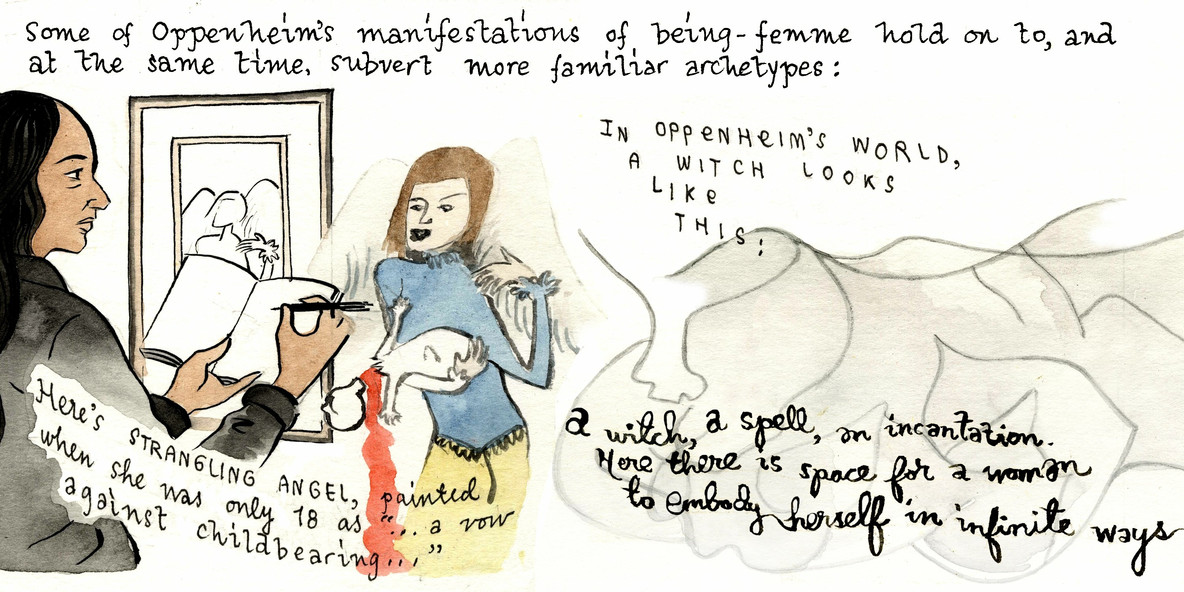 Some of Oppenheim's manifestations of being-femme hold on to, and
at the same time, subvert more familiar archetypes:
IN OPPENHEIM'S WORLD,
A WITCH LOOKS
LIKE
THIS:
Here's STRANGLING ANGEL, painted
when she was only 18 as "... a vow
against childbearing..."
a witch, a spell, an incantation.
Here there is space for a woman
to embody herself in infinite ways